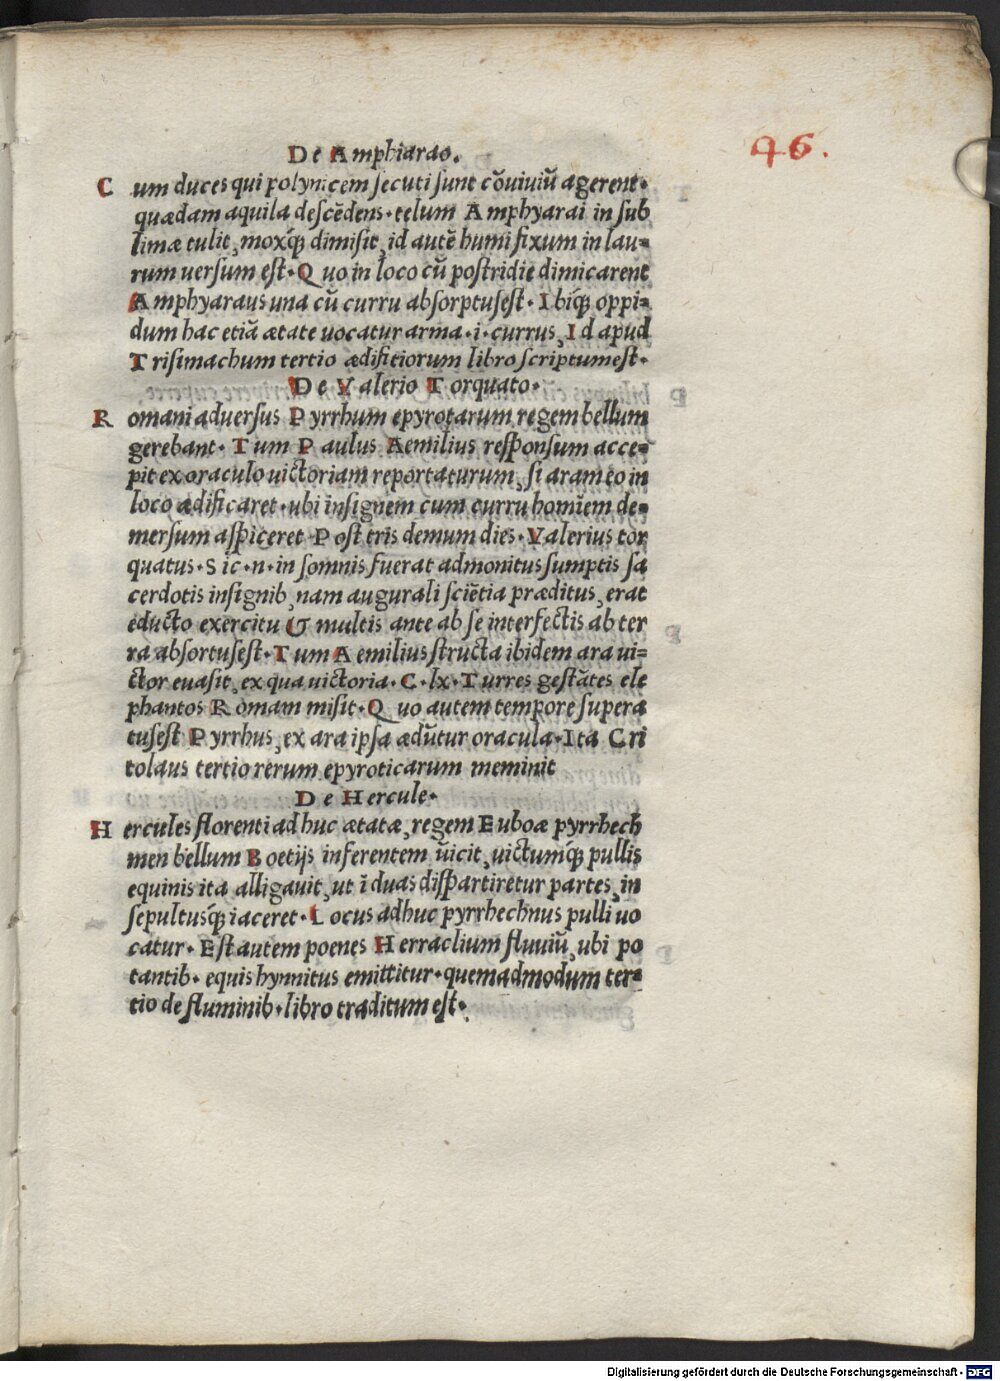 46.
De Amphiarao.
Cum duces qui polynicem secuti sunt cōuiuiū agerent·
quædam aquila descēdens·telum Amphyarai in sub
limæ tulit, moxq́ꝫ dimisit, id autē humi fixum in lau-
rum uersum est·Quo in loco cū postridie dimicarent
Amphyaraus una cū curru absorptusest·Ibiq́ꝫ oppi-
dum hac etiā ætate uocatur arma·i·currus, Id apud
Trisimachum tertio ædifitiorum libro scriptumest·
De Valerio Torquato·
Romani adversus Pyrrhum epyrotarum regem bellum
gerebant·Tum Paulus Aemilius responsum acce-
pit ex oraculo uictoriam reportaturum, si aram eo in
loco ædificaret·ubi insignem cum curru homīem de-
mersum aspiceret·Post tris demum dies·Valerius tor
quatus·Sic·n·in somnis fuerat admonitus sumptis sa
cerdotis insignib, nam augurali sciētia præditus, erat
educto exercitu & multis ante ab se interfectis ab ter
ra absortusest·Tum Aemilius structa ibidem ara ui-
ctor euasit, ex qua uictoria·C·lx·Turres gestātes ele
phantos Romam misit·Quo autem tempore supera
tusest Pyrrhus, ex ara ipsa ædūtur oracula·Ita Cri
tolaus tertio rerum epyroticarum meminit
De Hercule·
Hercules florenti ad huc ætatæ, regem Euboæ pyrrhech
men bellum Boetijs inferentem ūicit, uictumq́ꝫ pullis
equinis ita alligauit, ut ī duas dispartiretur partes, in
sepultusq́ꝫ iaceret·Locus adhuc pyrrhechnus pulli uo
catur·Est autem poenes Herraclium fluuiū, ubi po
tantib·equis hynnitus emittitur·quemadmodum ter-
tio de fluminib·libro traditum est·
Digitalisierung gefördert durch die Deutsche Forschungsgemeinschaft · DFG